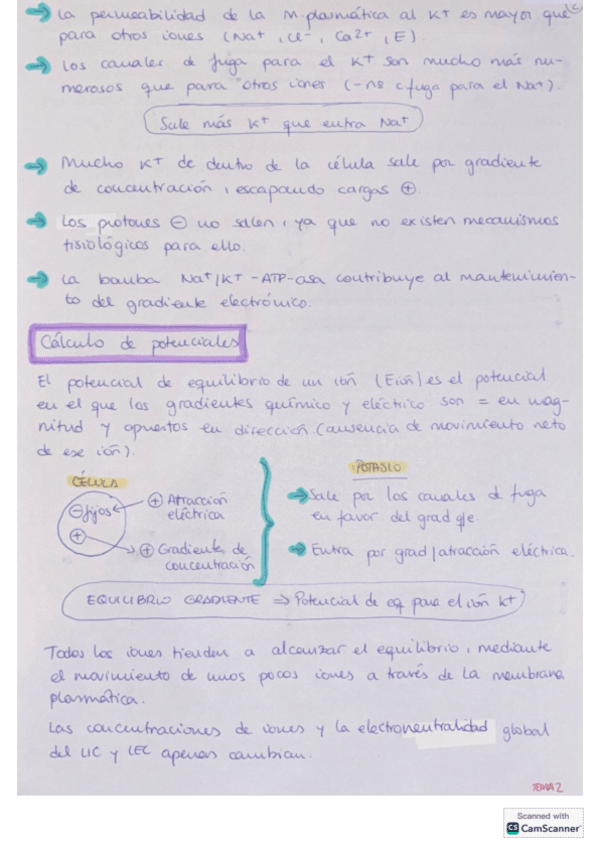 → La permeabilidad de la M. plasmática al K+ es mayor que
para otros iones (Na+, Cl-, Ca2+, E).
→ Los canales de fuga para el K+ son mucho más nu-
merosos que para otros iones (-ns c fuga para el Na+).
Sale más K+ que entra Na+
→ Mucho K+ de dentro de la célula sale por gradiente
de concentración, escapando cargas ⊕.
→ Los protones ⊖ no salen, ya que no existen mecanismos
fisiológicos para ello.
→ La bomba Na+/K+ -ATP-asa contribuye al mantenimien-
to del gradiente electrónico.
Cálculo de potenciales
El potencial de equilibrio de un ión (Eión) es el potencial
en el que los gradientes químico y eléctrico son = en mag-
nitud y opuestos en dirección (ausencia de movimiento neto
de ese ión).
CÉLULA
⊖ fijos
⊕
⊕ Atracción
eléctrica
⊕ Gradiente de
concentración
POTASIO
→ Sale por los canales d fuga
en favor del grad qe.
→ Entra por grad/atracción eléctrica.
EQUILIBRIO GRADIENTE ⇒ Potencial de eq para el ión K+
Todos los iones tienden a alcanzar el equilibrio, mediante
el movimiento de unos pocos iones a través de la membrana
plasmática.
Las concentraciones de iones y la electroneutralidad global
del LIC y LEC apenas cambian.
TEMA 2
Scanned with
CS CamScanner